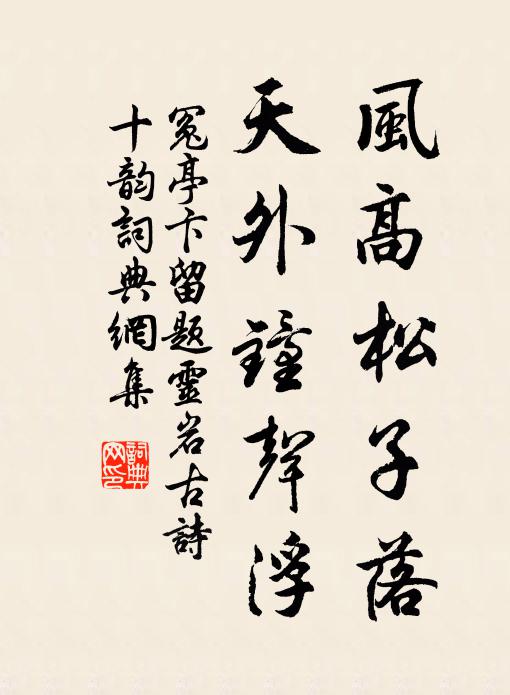 風高松子落
天外鐘聲浮
冤亭卞留題靈岩古詩
十韵詞典網集
詞典網印